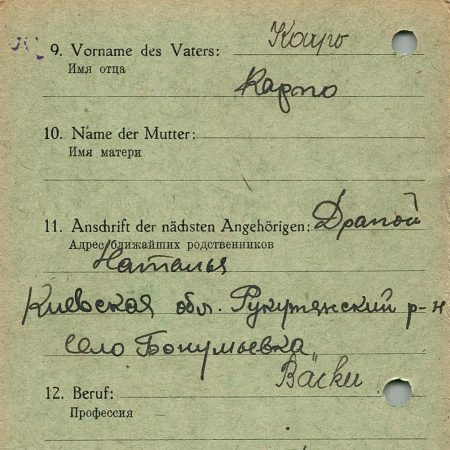 9. Vorname des Vaters:
Имя отца
Карпо
10. Name der Mutter:
Имя матери
11. Anschrift der nächsten Angehörigen: Драпой
Адрес ближайших родственников
Наталья
Киевская обл. р-н
село
12. Beruf:
Профессия